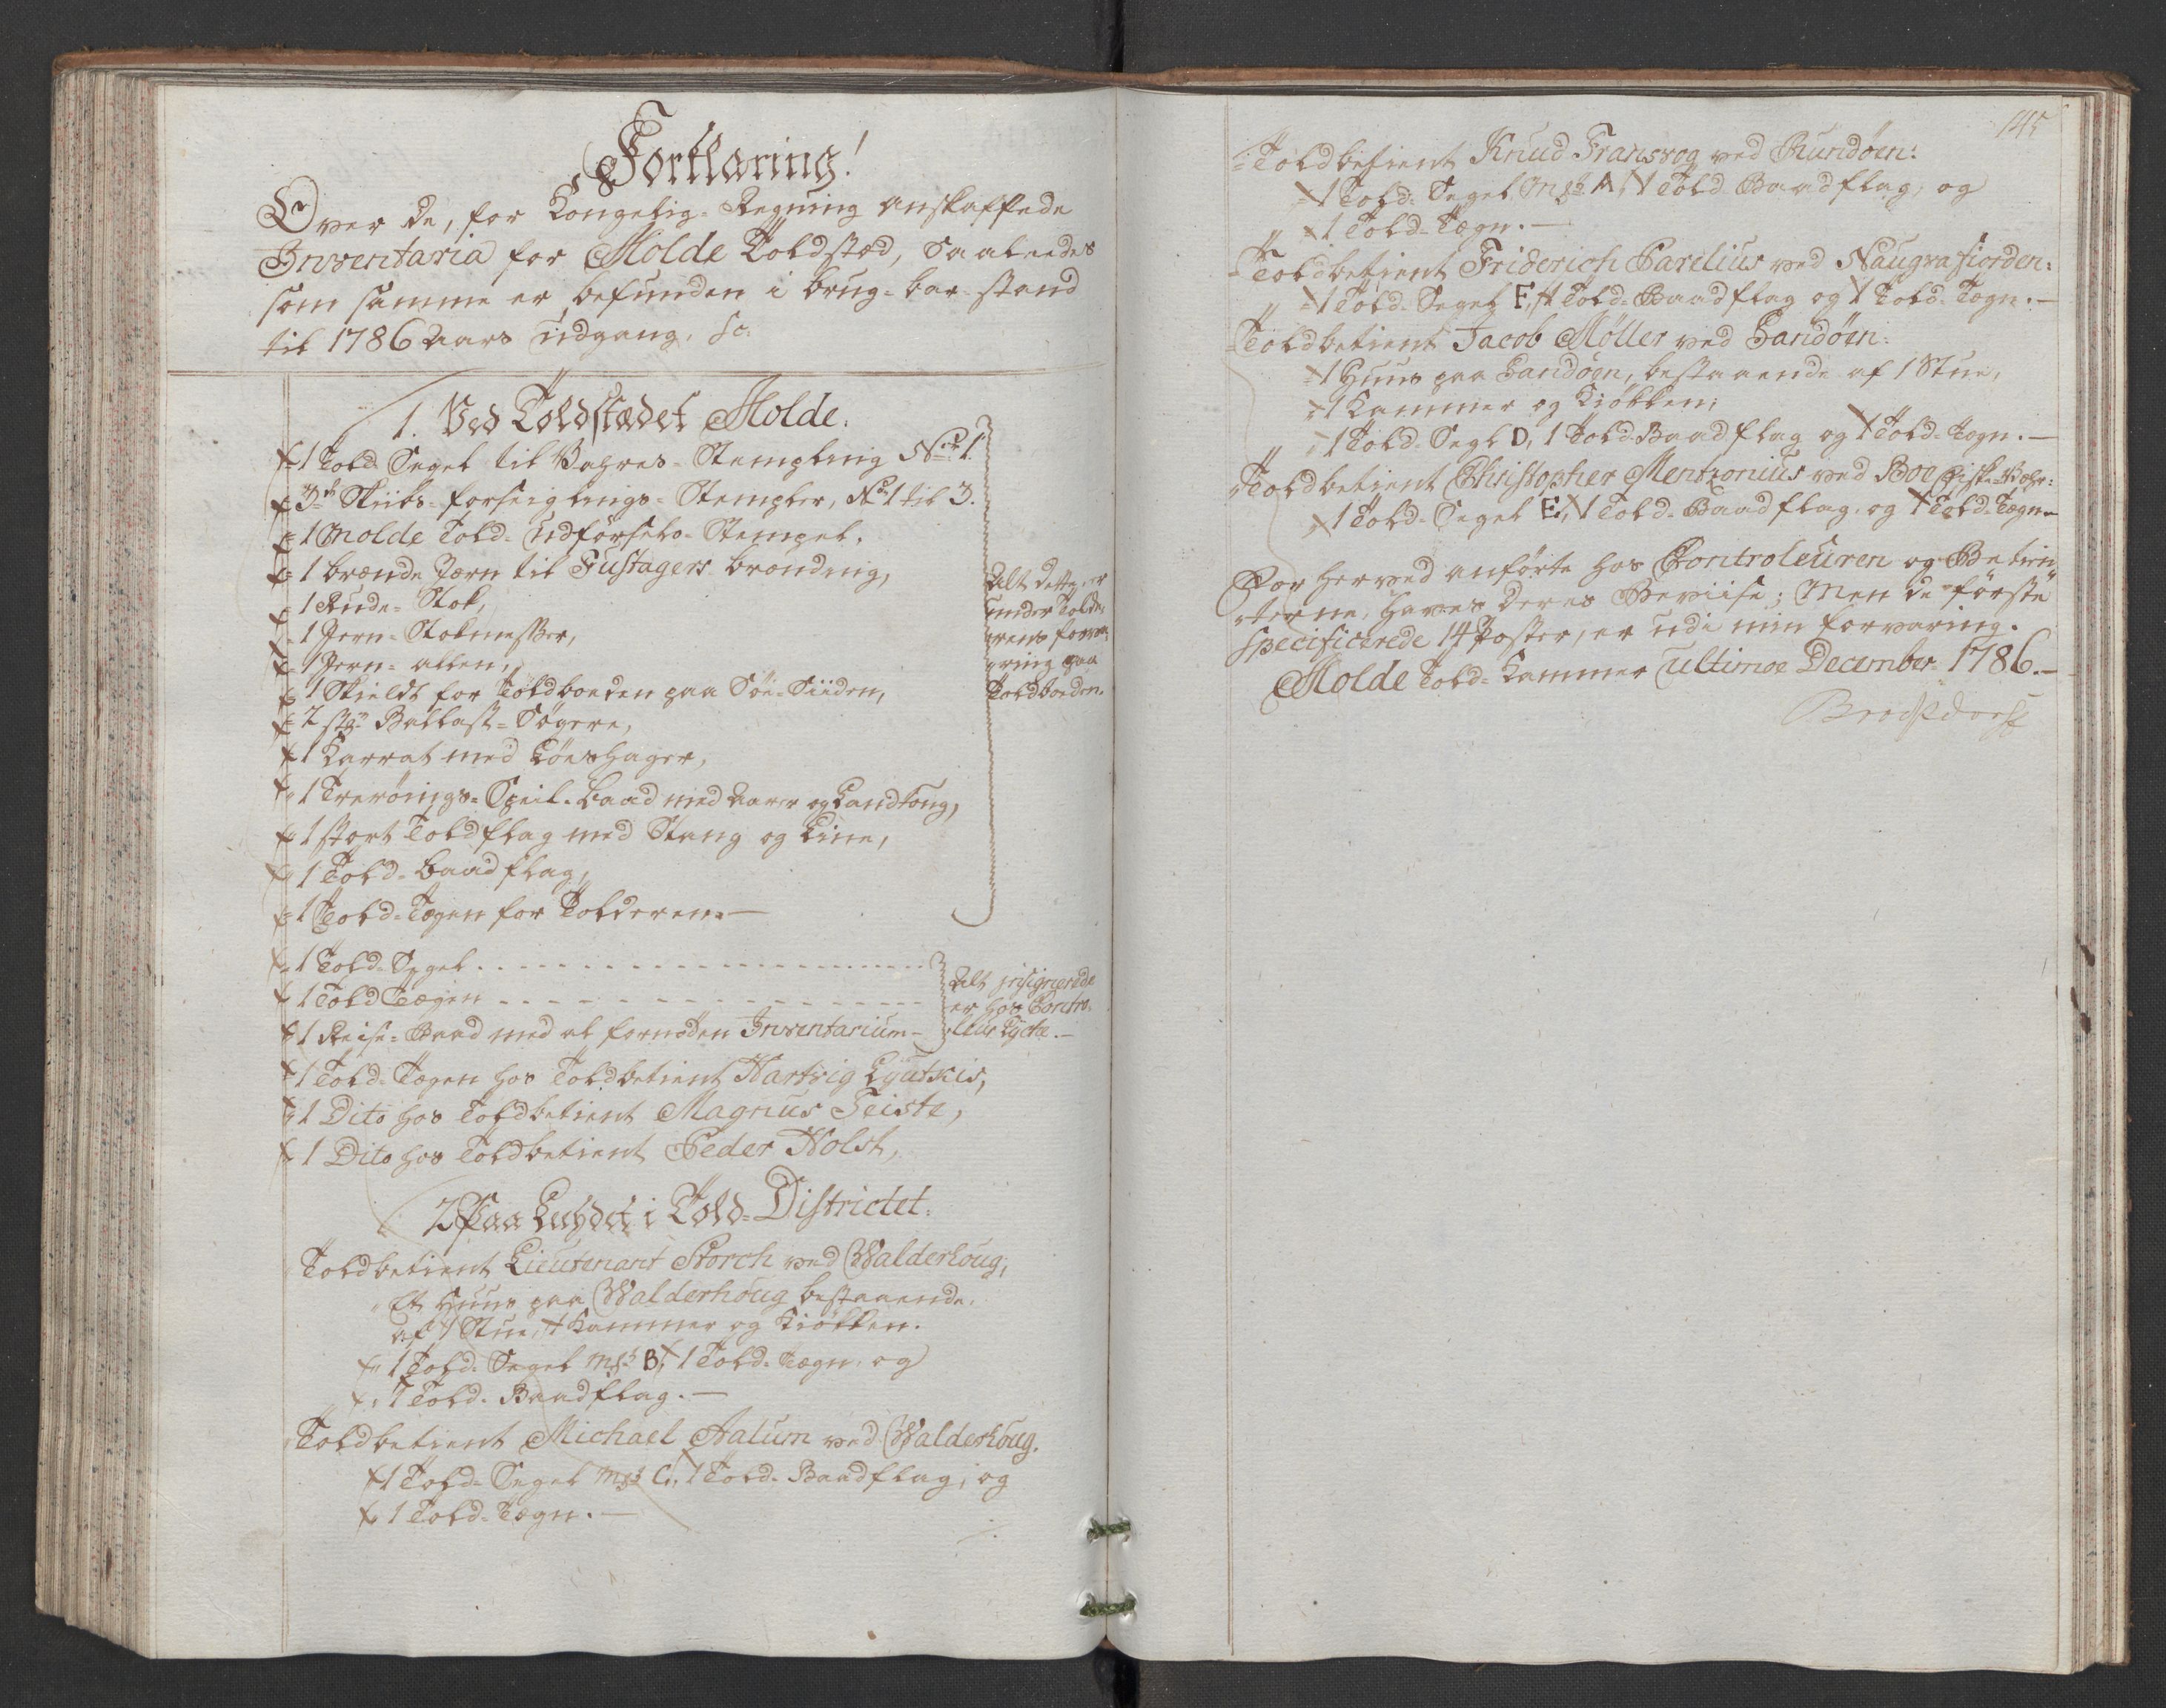 Forklaring!
Over de, for Kongelig-Regning anskaffede
Inventaria for Molde Toldsted, Saaledes
som samme er befunden i brug-bar-stand
til 1786 Aars Udgang. Sc:
1. Ved Toldstædet Molde.
1 Told Segel til Vahres-Stempling No 1.
3de Skibs-forseiglings-Stempler, No 1 til 3.
1 Molde Told-Udförsels-Stempel,
1 brænde Jærn til Fustagers brænding,
1 Rude-Stok,
1 Jern-Stokmesser,
1 Jern-allen,
1 Skieldt for Toldboeden paa Söe-Siiden,
2 stk Ballast-Sögere,
1 Karrat med Hager,
1 Trerönings-Speil-baad med Aarer og
1 stort Toldflag med Stang og Line,
1 Told-baadflag,
1 Told-Tegen for Tolderen.—
Alt dette er
under Tolde-
rens forva-
ring paa
Toldboeden.
1 Told-Segel
1 Told Tægen
1 Reise-Baad med al fornöden Inventarium
Alt
er hos Contro-
leur Lÿche.—
1 Told-Tegen hos Toldbetient Hartvig
1 Dito hos Toldbetient Magnus Teiste,
1 Dito hos Toldbetient Peder Holst,
2 Paa Landet i Told-Districtet.
Toldbetient Lieutenant Storch ved Walderhoug,
Et Huus paa Walderhoug bestaaende
af 1 Stue, 1 Kammer og Kiökken.
1 Told-Segel B, 1 Told-Tegn, og
1 Told-Baadflag.—
Toldbetient Michael Aalum ved Walderhoug.
1 Told-Segel C, 1 Told-Baadflag, og
1 Told-Tegn.—
145
Toldbetient Knud Fransvog ved Rundöen:
1 Told-Segel A, 1 Told-Baadflag, og
1 Told-Tegn.—
Toldbetient Friderich Parelius ved Haugnafiorden:
1 Told-Segel F, 1 Told-Baadflag og 1 Told-Tegn.—
Toldbetient Jacob Möller ved Sandöen:
1 Huus paa Sandöen, bestaaende af 1 Stue,
1 Kammer og Kiökken;
1 Told-Segl D, 1 Told-Baadflag og 1 Told-Tegn.—
Toldbetient Christopher Mentzonius ved Boe
1 Told-Segel E, 1 Told-Baadflag og 1 Told-Tegn
For herved anförte hos Controleuren og Betien-
terne, haves deres Beviise; Men de förste
specificerede 14 Poster, er udi min forvaring.
Molde Told-Kammer ultimoe December 1786.—